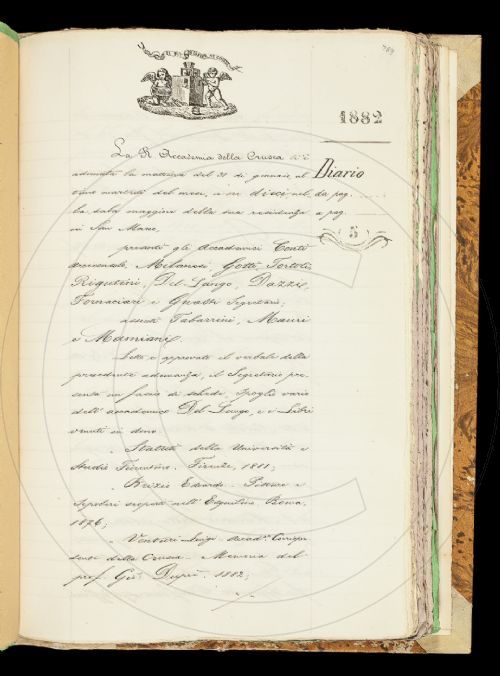 1882
Diario
da pag.
a pag.
5
La R. Accademia della Crusca si è
adunata la mattina del 31 di gennaio al
martedì del mese, dieci nel
la sala maggiore della sua residenza
in San Marco,
presenti gli Accademici Conti
Arciconsolo, Milanesi, Gotti, Tortoli,
Rigutini, Del-Lungo, Dazzi,
Fornaciari e Gualtr Segretario;
assenti Tabarrini, Mauri
e Mamiani.
Letto e approvato il verbale della
precedente adunanza, il Segretario pre
senta un fascio di schede, spoglio vario
dell' accademico Del-Lungo, e i Libri
venuti in dono
Statuto della Università e
Studio Fiorentino. Firenze, 1881;
Brizio Edoardo. Pitture e
Sepolcri scoperti sull' Esquilino. Roma,
1876;
Venturi Luigi Accad.º Corrispon
dente della Crusca. Memoria del
prof. Gio. Duprè. 1882;